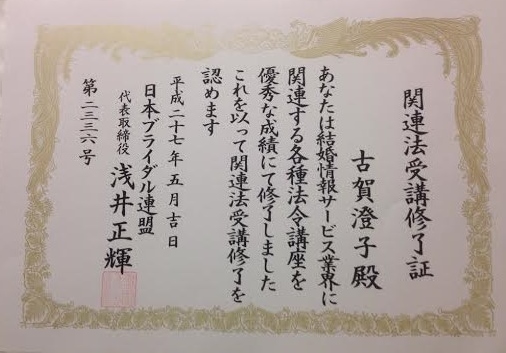 関連法受講修了証
古賀澄子殿
あなたは結婚情報サービス業界に
関連する各種法令講座を
優秀な成績にて修了しました
これを以って関連法受講修了を
認めます
平成二十七年五月吉日
日本ブライダル連盟
代表取締役 浅井正輝
第二三三六号